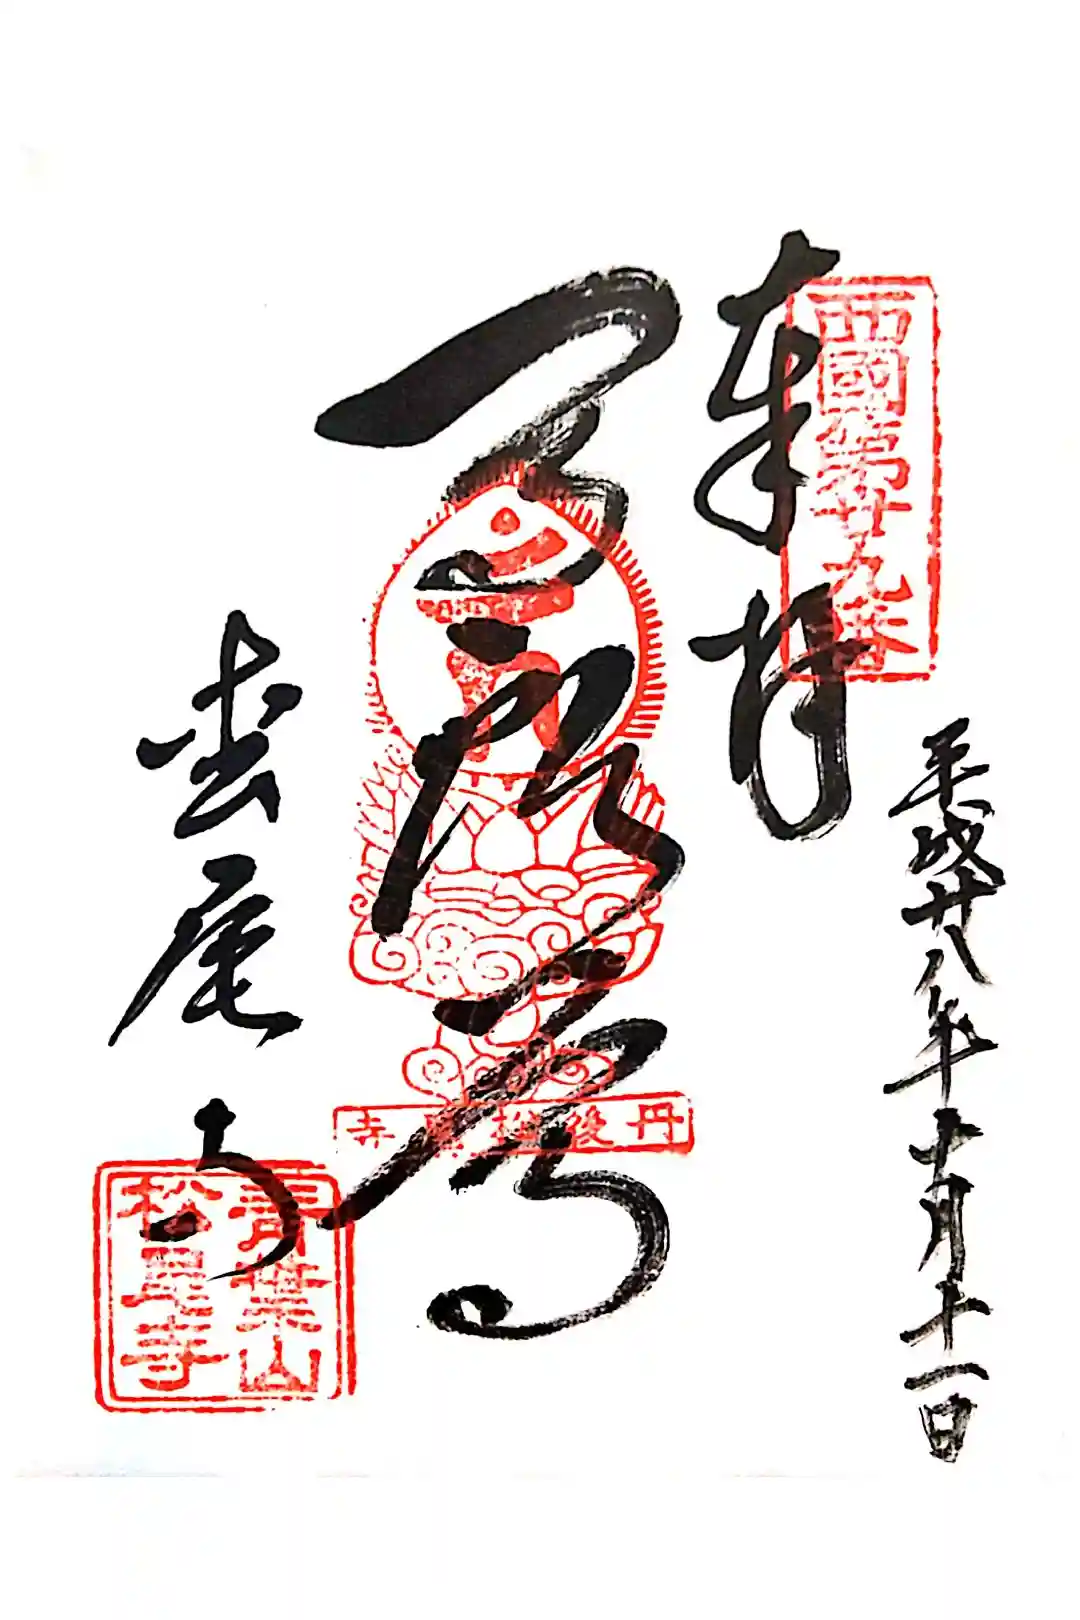 西國第廿九番
奉拝
平成廿八年十月十一日
丹後松尾寺
松尾寺
青葉山
松尾寺